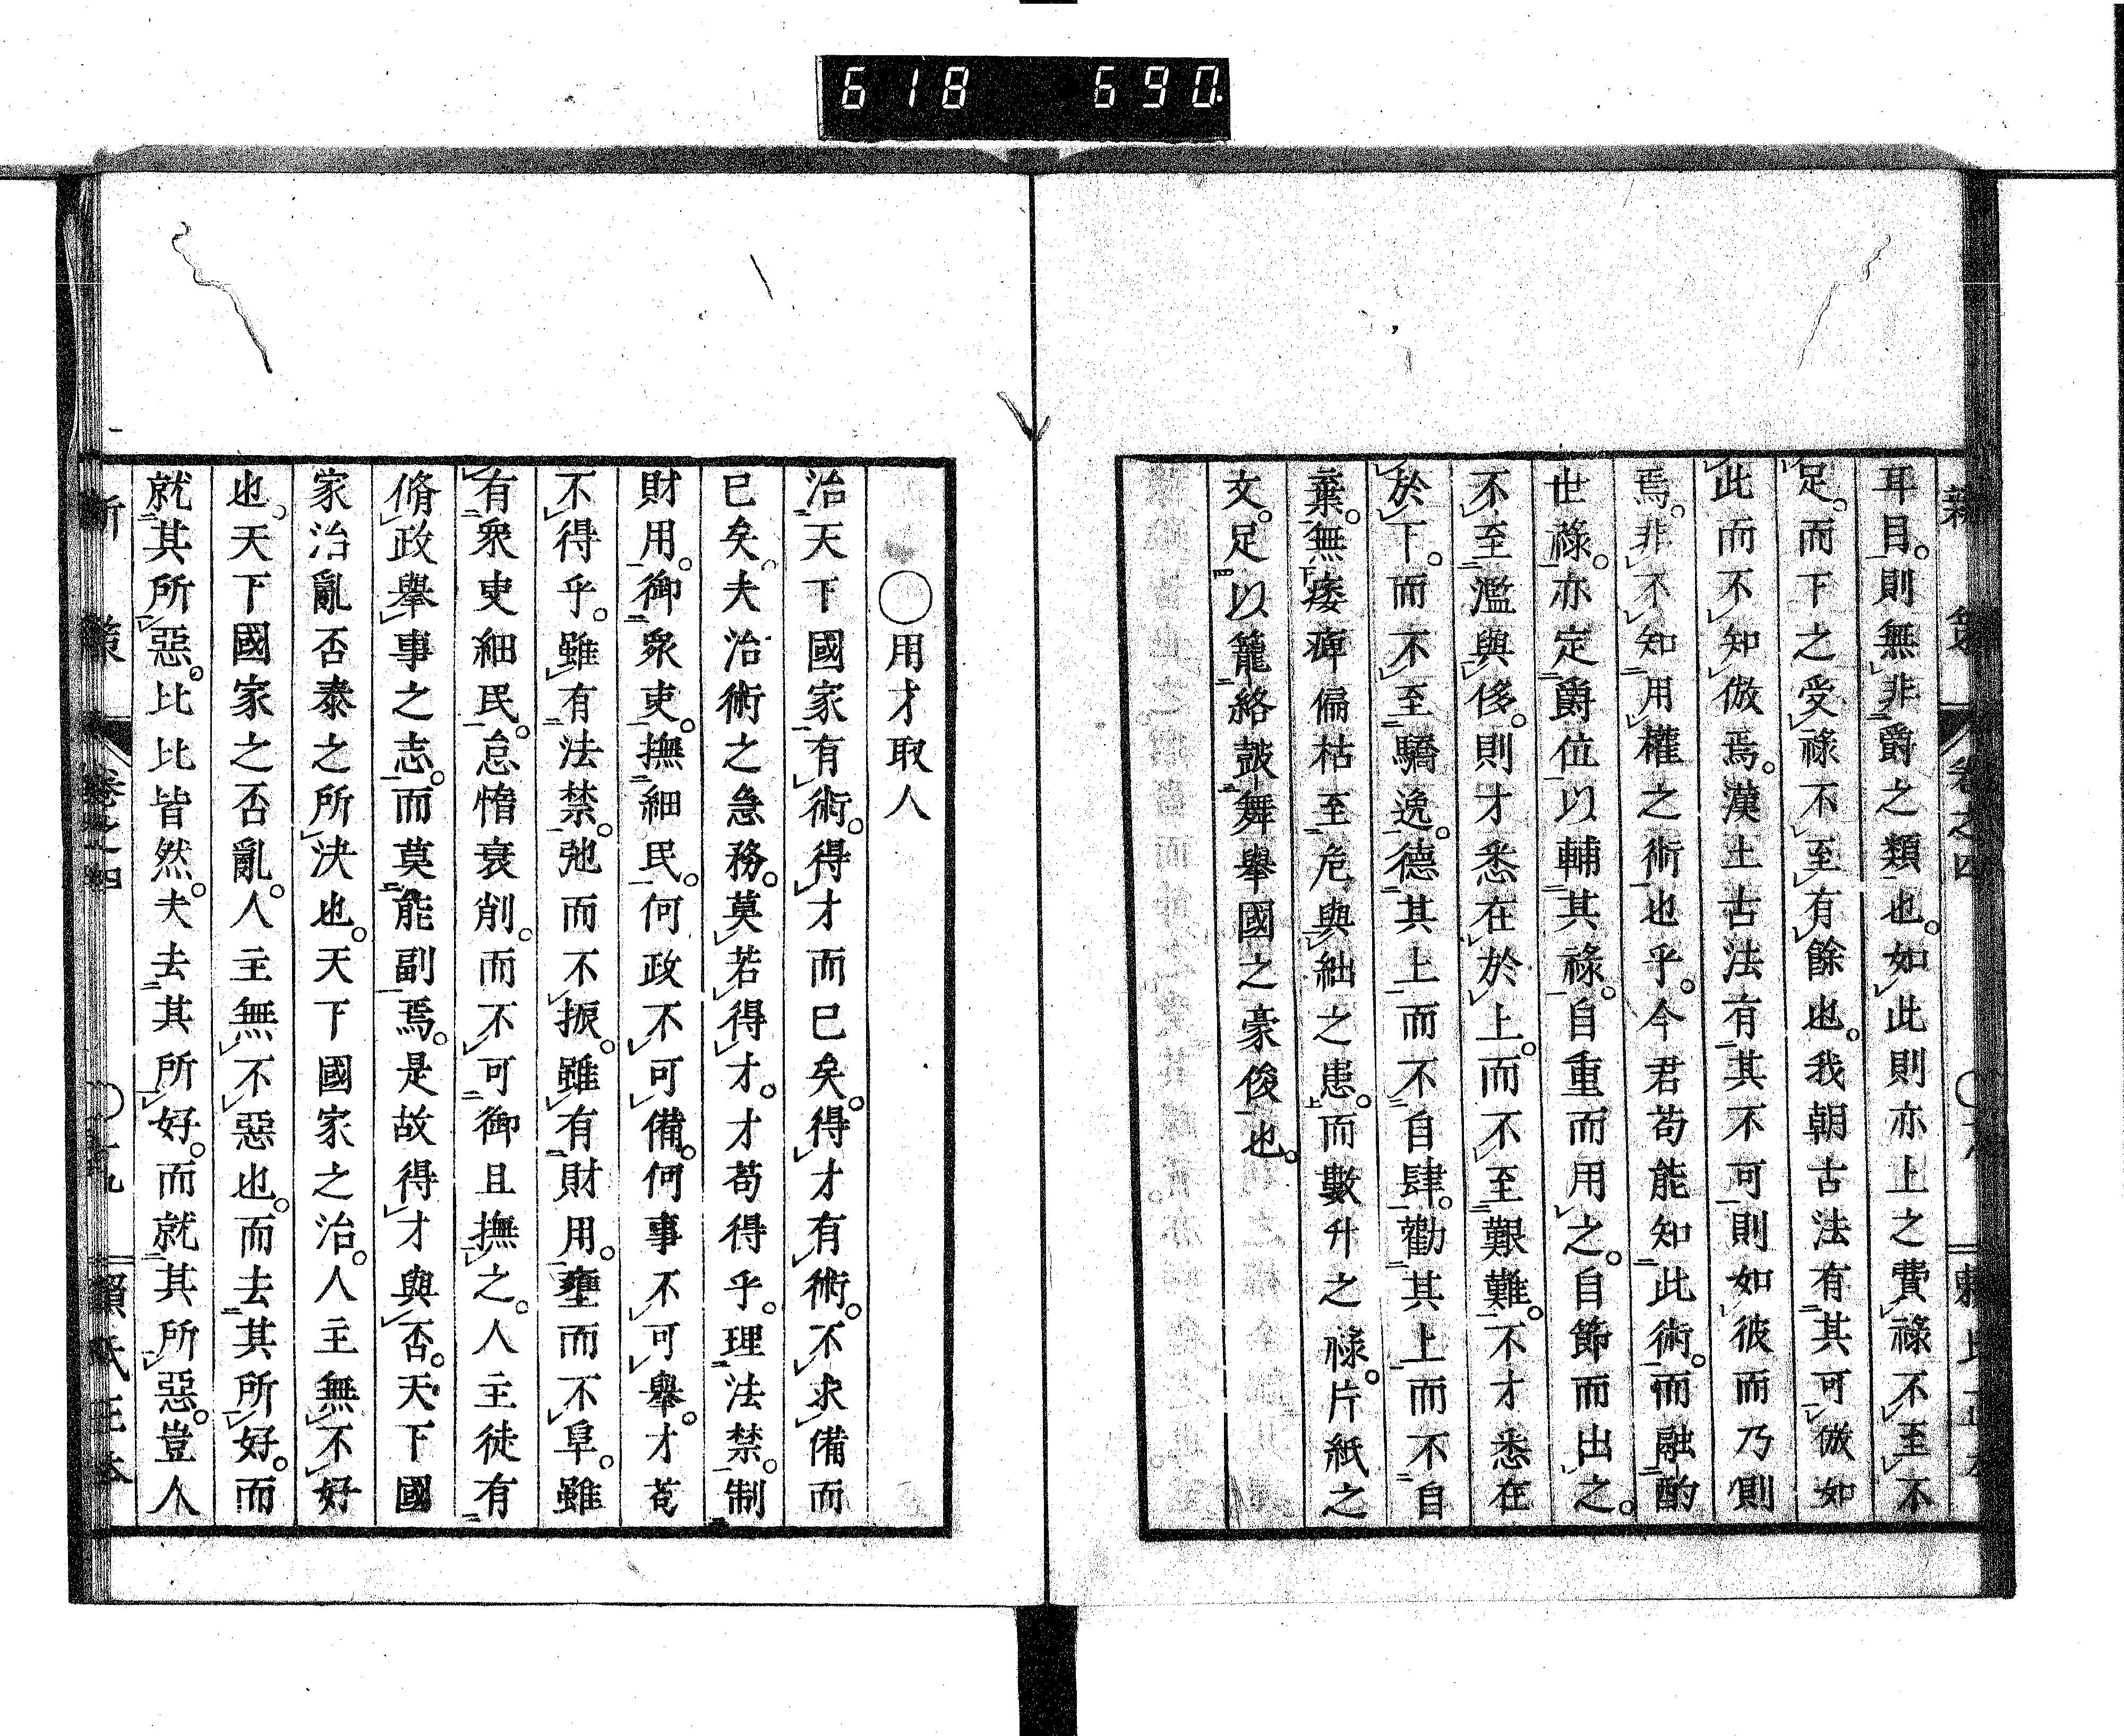 618 690.
新策 卷之四
耳目。則無非爵之類也。如此則亦上之費祿不至不
足。而下之受祿不至有餘也。我朝古法有其可倣如
此而不知倣焉。漢土古法有其不可則如彼而乃則
焉。非不知用權之術也乎。今君苟能知此術。而融酌
世祿。亦定爵位以輔其祿。自重而用之。自節而出之。
不至濫與侈。則才悉在於上。而不至艱難。不才悉在
於下。而不至驕逸。德其上而不自肆。勸其上而不自
棄。無痿痺偏枯至危與絀之患。而數升之祿。片紙之
文。足以籠絡鼓舞舉國之豪俊也。
○用才取人
治天下國家有術。得才而已矣。得才有術。不求備而
已矣。夫治術之急務。莫若得才。才苟得乎。理法禁。制
財用。御眾吏。撫細民。何政不可備。何事不可舉。才苟
不得乎。雖有法禁。弛而不振。雖有財用。壅而不阜。雖
有眾吏細民。怠惰衰削。而不可御且撫之。人主徒有
脩政舉事之志。而莫能副焉。是故得才與否。天下國
家治亂否泰之所決也。天下國家之治。人主無不好
也。天下國家之否亂。人主無不惡也。而去其所好。而
就其所惡。比比皆然。夫去其所好。而就其所惡。豈人
新策 卷之四 ○十九 賴氏正本